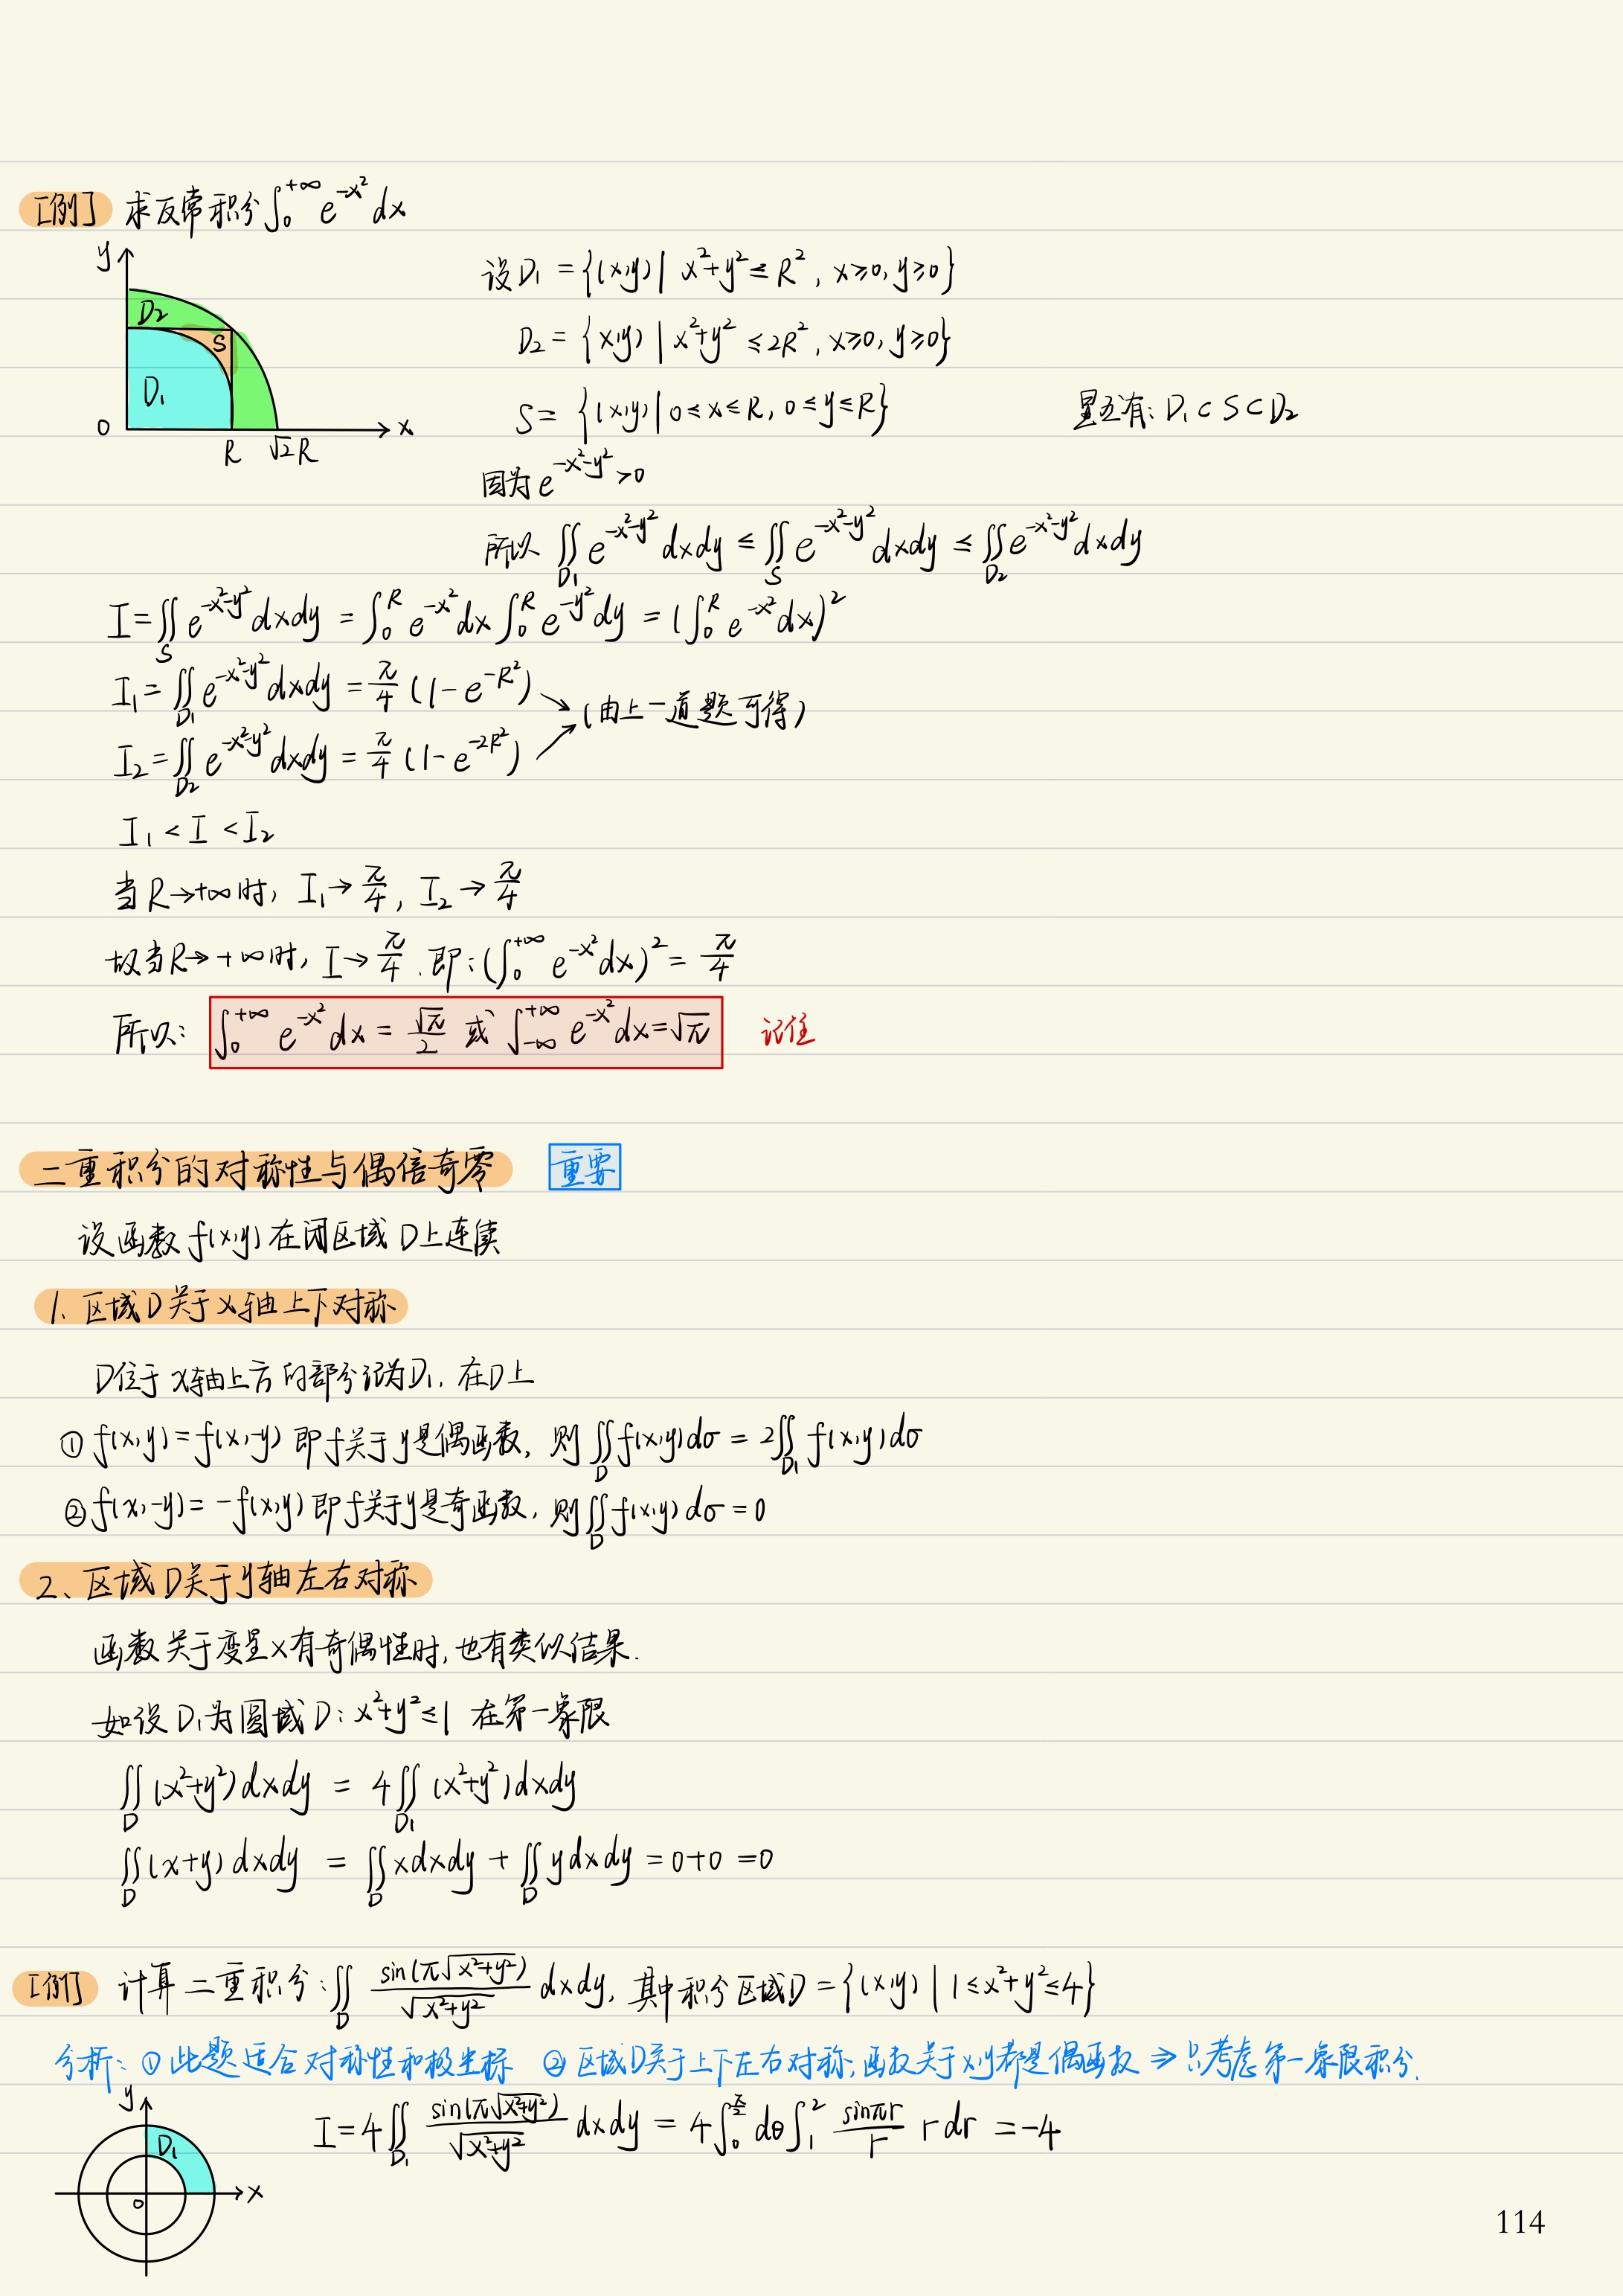 [例] 求反常积分 ∫₀^{+∞} e^{-x²} dx
y
D₂
S
D₁
0 R √2R x
设D₁ = {(x,y) | x²+y² ≤ R², x≥0, y≥0}
D₂ = {x,y) | x²+y² ≤ 2R², x≥0, y≥0}
S = {(x,y) | 0≤x≤R, 0≤y≤R} 显然有: D₁⊂S⊂D₂
因为 e^{-x²-y²} >0
所以 ∬_{D₁} e^{-x²-y²} dxdy ≤ ∬_S e^{-x²-y²} dxdy ≤ ∬_{D₂} e^{-x²-y²} dxdy
I = ∬_S e^{-x²-y²} dxdy = ∫₀^R e^{-x²} dx ∫₀^R e^{-y²} dy = (∫₀^R e^{-x²} dx)²
I₁ = ∬_{D₁} e^{-x²-y²} dxdy = π/4 (1-e^{-R²})
(由上一道题可得)
I₂ = ∬_{D₂} e^{-x²-y²} dxdy = π/4 (1-e^{-2R²})
I₁ < I < I₂
当 R→+∞ 时, I₁→π/4, I₂→π/4
故当R→+∞时, I→π/4. 即: (∫₀^{+∞} e^{-x²} dx)² = π/4
所以: ∫₀^{+∞} e^{-x²} dx = √π/2 或 ∫_{-∞}^{+∞} e^{-x²} dx = √π 记住
二重积分的对称性与偶倍奇零 重要
设函数 f(x,y) 在闭区域 D上连续
1. 区域D关于x轴上下对称
D位于x轴上方的部分记为D₁, 在D上
① f(x,y) = f(x,-y) 即f关于y是偶函数, 则 ∬_D f(x,y)dσ = 2∬_{D₁} f(x,y)dσ
② f(x,-y) = -f(x,y) 即f关于y是奇函数, 则 ∬_D f(x,y)dσ = 0
2、区域D关于y轴左右对称
函数关于变量x有奇偶性时, 也有类似结果.
如设 D₁为圆域 D: x²+y²≤1 在第一象限
∬_D (x²+y²) dxdy = 4∬_{D₁} (x²+y²) dxdy
∬_D (x+y) dxdy = ∬_D x dxdy + ∬_D y dxdy = 0+0 = 0
[例] 计算二重积分: ∬_D sin(π√(x²+y²))/√(x²+y²) dxdy, 其中积分区域D = {(x,y) | 1≤x²+y²≤4}
分析: ① 此题适合对称性和极坐标 ② 区域D关于上下左右对称; 函数关于x,y都是偶函数 ⇒ 只考虑第一象限积分.
y
D₁
0 x
I = 4∬_{D₁} sin(π√(x²+y²))/√(x²+y²) dxdy = 4∫₀^{π/2} dθ ∫₁² sinπr/r r dr = -4
114